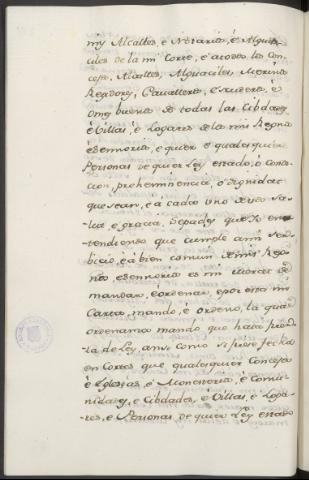 mis Alcaldes, è Notarios, è Alguaci-
ciles de la mi Corte, è a todos los Con-
cejos, Alcaldes, Alguaciles, Merinos
Regidores, Cavalleros, Escuderos, è
Omes buenos de todas las Cibdades
è Villas, è Logares de los mis Regnos
è Señorios, è quier è qualesquier
Personas de quier Ley, estado, ò Condi-
cion, preheminencia, ò dignidat
que sean, è a cada uno de vos sa-
lut, è gracia, Sepades que Yo en-
tendiendo que cumple a mi Ser-
bicio, è à bien comun de mis Reg-
nos è Señorios es mi mercet de
mandar, è ordenar, è por esta mi
Carta, mando, è ordeno, la qual
ordenanza mando que haia fuer-
za de Ley, ansi como si fuese fecha
en Cortes que qualesquier Concejos
è Iglesias, è Monesterios, è Comu-
nidades, è Cibdades, è Villas, è Loga-
res, è Personas de quier Ley, estado